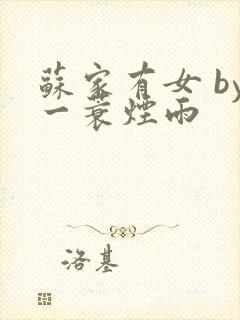 蘇家有女 by
一蓑煙雨
洛基